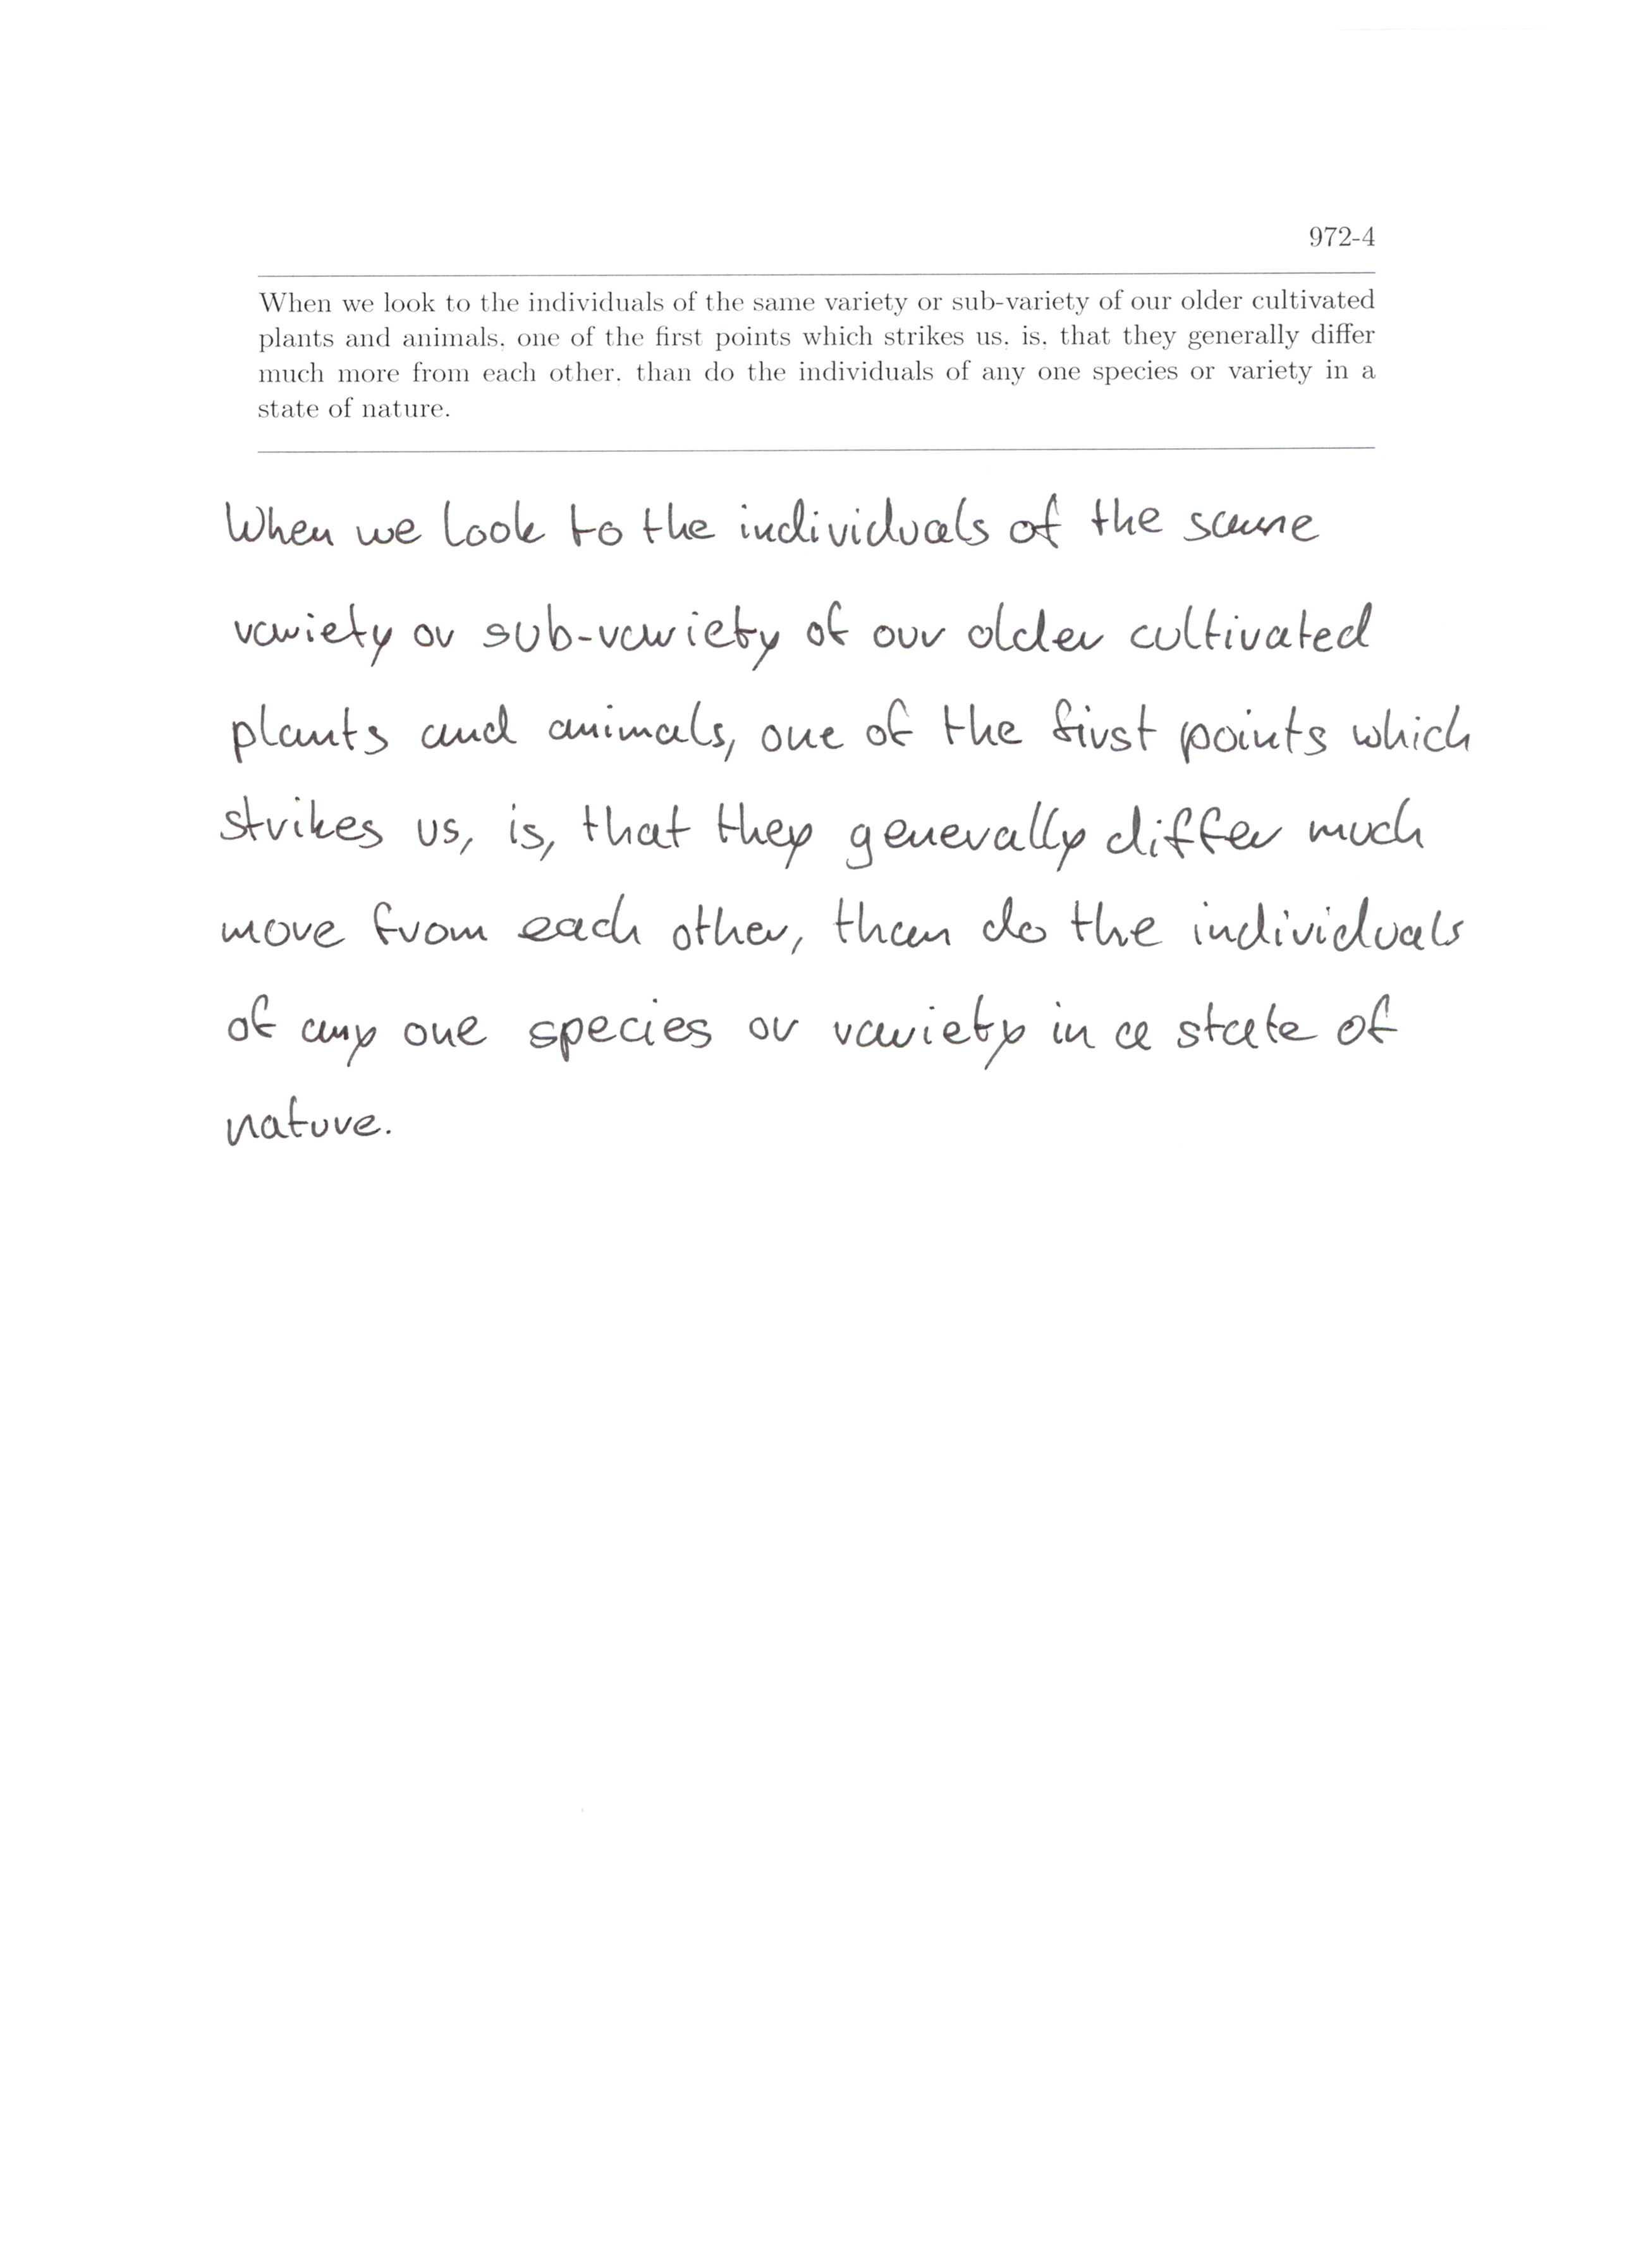 972-4
When we look to the individuals of the same variety or sub-variety of our older cultivated
plants and animals, one of the first points which strikes us, is, that they generally differ
much more from each other, than do the individuals of any one species or variety in a
state of nature.
When we look to the individuals of the same
variety or sub-variety of our older cultivated
plants and animals, one of the first points which
strikes us, is, that they generally differ much
more from each other, than do the individuals
of any one species or variety in a state of
nature.